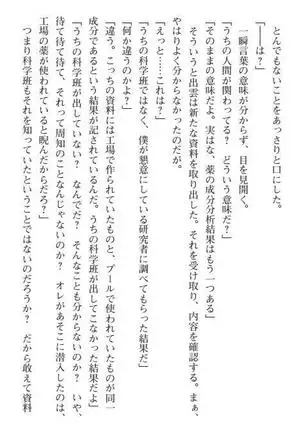 とんでもないことをあっさりと口にした。
「――は？」
一瞬言葉の意味が分からず、目を見開く。
「うちの人間が関わってる？　どういう意味だ？」
「そのままの意味だよ。実はな、薬の成分分析結果はもう一つある」
そういうと出雲は新たな資料を取り出した。それを受け取り、内容を確認する。まぁ、
やはりよく分からなかったのだが。
「えっと……これは？」
「うちの科学班ではなく、僕が懇意にしている研究者に調べてもらった結果だ」
「何か違うのかよ？」
「違う。こっちの資料には工場で作られていたものと、プールで使われていたものが同一
成分であるという結果が記されているんだ。うちの科学班が出してこなかった結果だよ」
「うちの科学班が出していない？　なんでだ？　そんなことも分からないのか？　いや、
待て待て待て、それって周知のことなんじゃないのか？　オレがあそこに潜入したのは、
工場の薬が使われていると睨んだからだろ？
つまり科学班もそれを知っていたということではないのだろうか？　だから敢えて資料